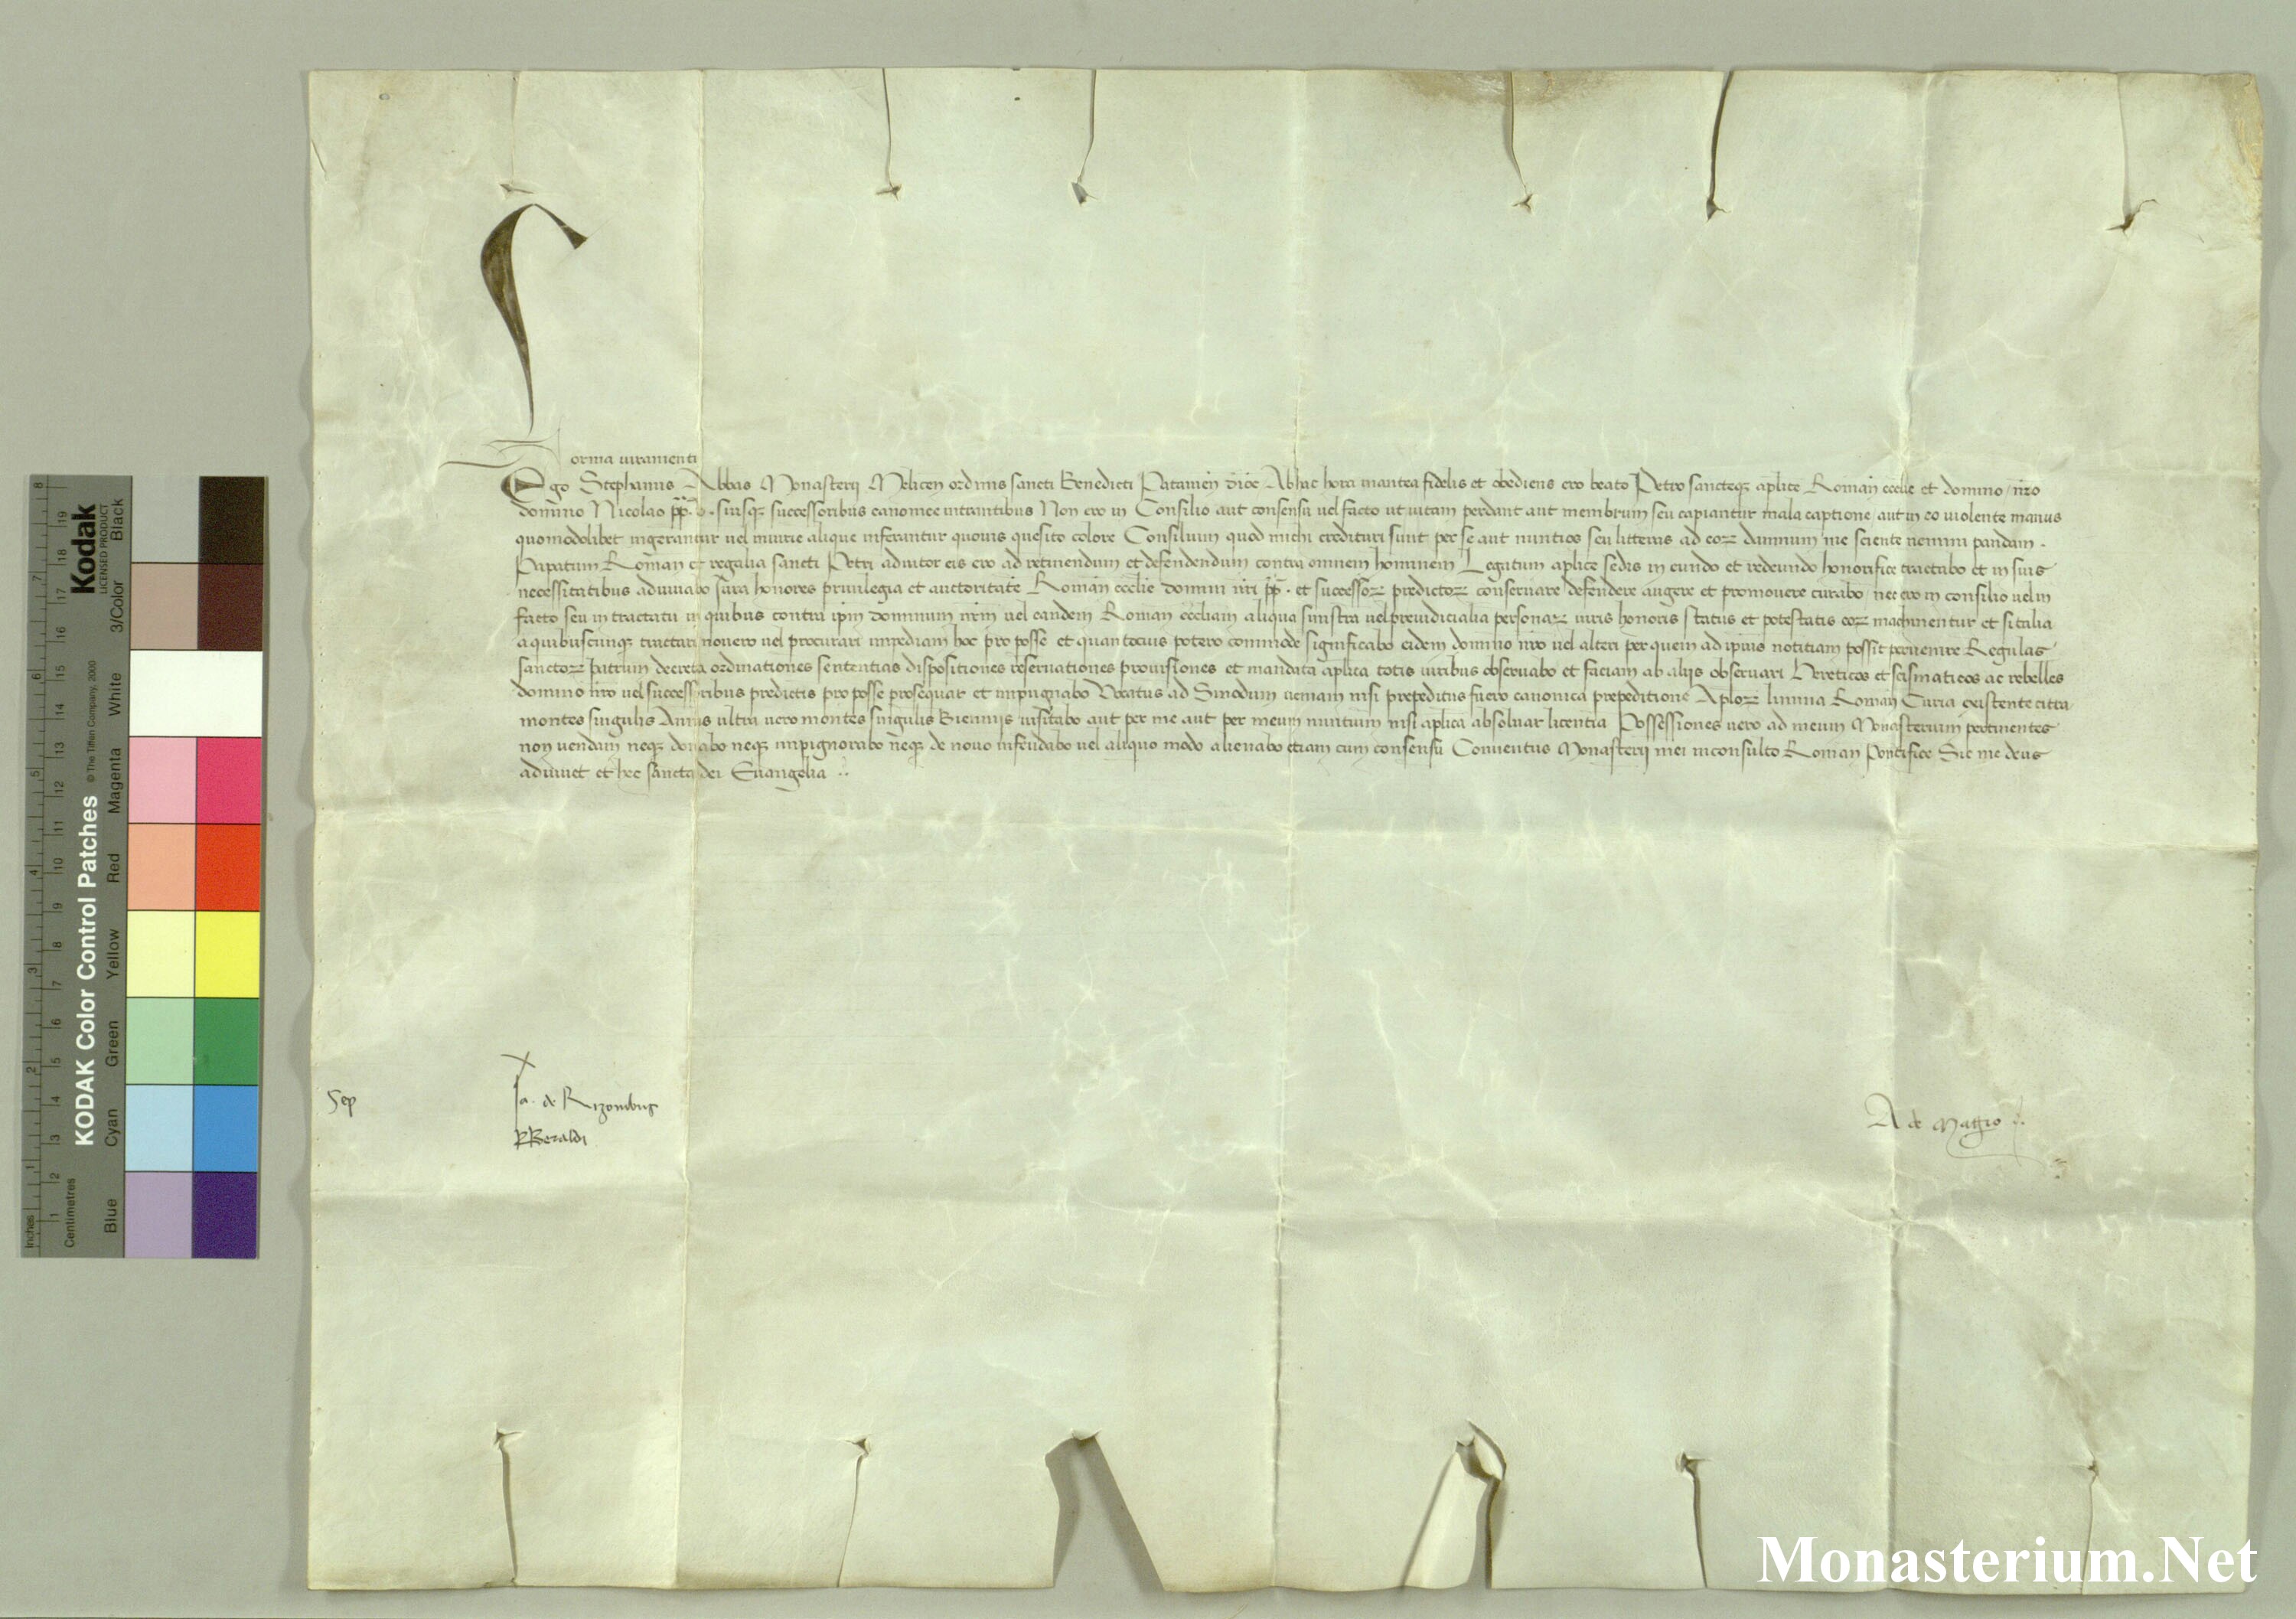 Forma iuramenti
Ego Stephanus Abbas Monasterij Melicen̄ ordinis sancti Benedicti Patauien̄ dioc̄ Ab hac hora inantea fidelis et obediens ero beato Petro sancteqꝫ aplice Roman̄ ecclie et domino nr̄o
domino Nicolao pp̄ v. suisqꝫ successoribus canonice intrantibus Non ero in Consilio aut consensu uel facto ut uitam perdant aut membrum seu capiantur mala captione aut in eo uiolente manus
quomodolibet ingerantur uel iniurie alique inferantur quouis quesito colore Consilium quod michi credituri sunt per se aut nuntios seu litteras ad eoꝝ damnum me sciente nemini pandam .
Papatum Roman̄ et regalia sancti Petri adiutor eis ero ad retinendum et defendendum contra omnem hominem Legatum aplice sedis in eundo et redeundo honorifice tractabo et in suis
necessitatibus adiuuabo Iura honores priuilegia et auctoritatē Roman̄ ecclie domini nr̄i pp̄ . et successoꝝ predictoꝝ conseruare defendere augere et promouere curabo nec ero in consilio uel in
facto seu in tractatu in quibus contra ipm̄ dominum nr̄m uel eandem Roman̄ eccliam aliqua sinistra uel preiudicialia personaꝝ iuris honoris status et potestatis eoꝝ machinentur et si talia
a quibuscunqꝫ tractari nouero uel procurari impediam hoc pro posse et quantocius potero commode significabo eidem domino nr̄o uel alteri per quem ad ipius notitiam possit peruenire Regulas
sanctoꝝ patrum decreta ordinationes sententias dispositiones reseruationes prouisiones et mandata aplica totis uiribus obseruabo et faciam ab alijs obseruari Hereticos et scismaticos ac rebelles
domino nr̄o uel successoribus predictis pro posse persequar et impugnabo Vocatus ad Sinodum ueniam nisi prepeditus fuero canonica prepeditione Aploꝝ limina Roman̄ Curia existente citra
montes singulis Annis ultra uero montes singulis Bienniis uisitabo aut per me aut per meum nuntium nisi aplica absoluar licentia Possessiones uero ad meum Monasterium pertinentes
non uendam neqꝫ donabo neqꝫ impignorabo neqꝫ de nouo infeudabo uel aliquo modo alienabo etiam cum consensu Conuentus Monasterij mei inconsulto Roman̄ Pontifice Sic me deus
adiuuet et hec sancta dei Euangelia
Sep
x
Ja. de Rizonibus
P Beraldi
A de Magio
Monasterium.Net
KODAK Color Control Patches
Kodak
LICENSED PRODUCT
© The Tiffen Company, 2000
Inches
Centimetres
Blue
Cyan
Green
Yellow
Red
Magenta
White
3/Color
Black